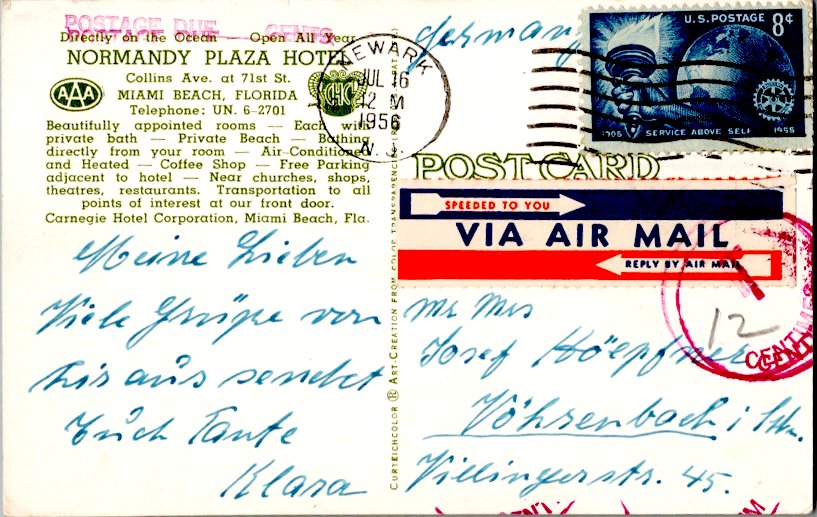 POSTAGE DUE CENTS
Directly on the Ocean — Open All Year
NORMANDY PLAZA HOTEL
Collins Ave. at 71st St.
MIAMI BEACH, FLORIDA
Telephone: UN. 6-2701
AAA
CHC
Beautifully appointed rooms — Each with
private bath — Private Beach — Bathing
directly from your room — Air-Conditioned
and Heated — Coffee Shop — Free Parking
adjacent to hotel — Near churches, shops,
theatres, restaurants. Transportation to all
points of interest at our front door.
Carnegie Hotel Corporation, Miami Beach, Fla.
Meine Lieben
Viele Grüße von
hir aus sendet
Euch Tante
Klara
CURTEICHCOLOR ® ART-CREATION FROM COLOR TRANSPARENCY
NEWARK
JUL 16
12 M
1956
N.J.
Germany
U.S. POSTAGE 8¢
1905 SERVICE ABOVE SELF 1955
POST CARD
SPEEDED TO YOU
VIA AIR MAIL
REPLY BY AIR MAIL
T
12
CENTIMES
Mr Mrs
Josef Höepfner
Vöhrenbach i Schw.
Villingerstr. 45.